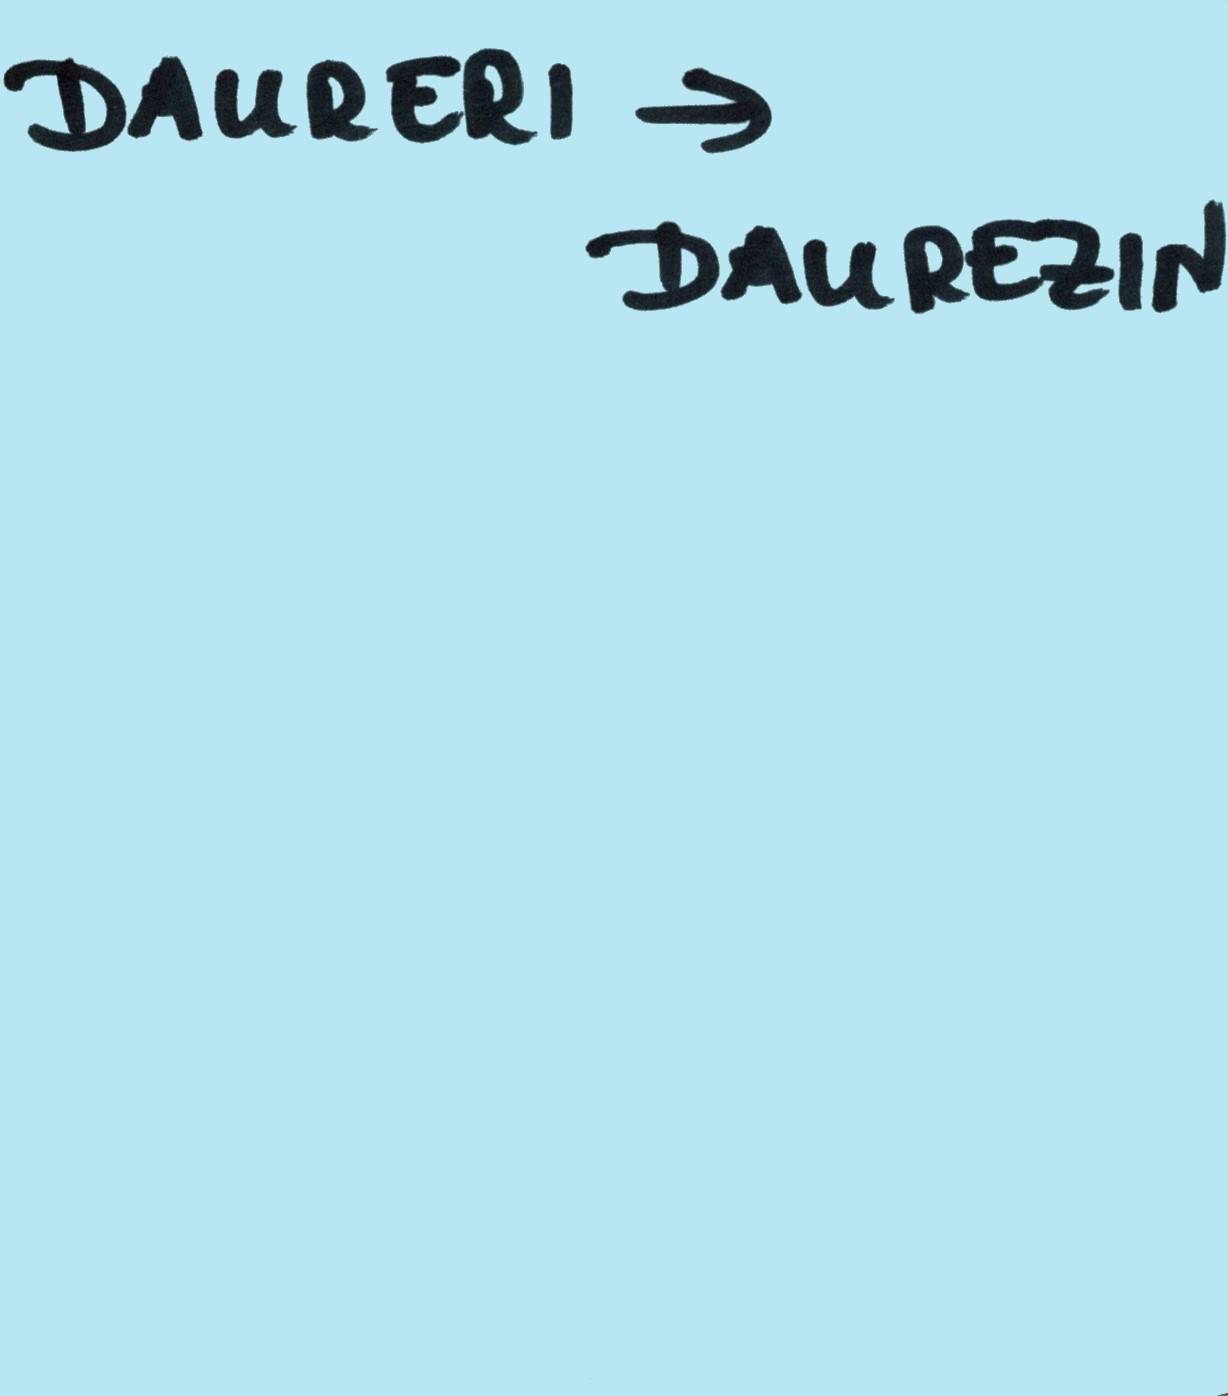 DAURERI →
DAUREZIN